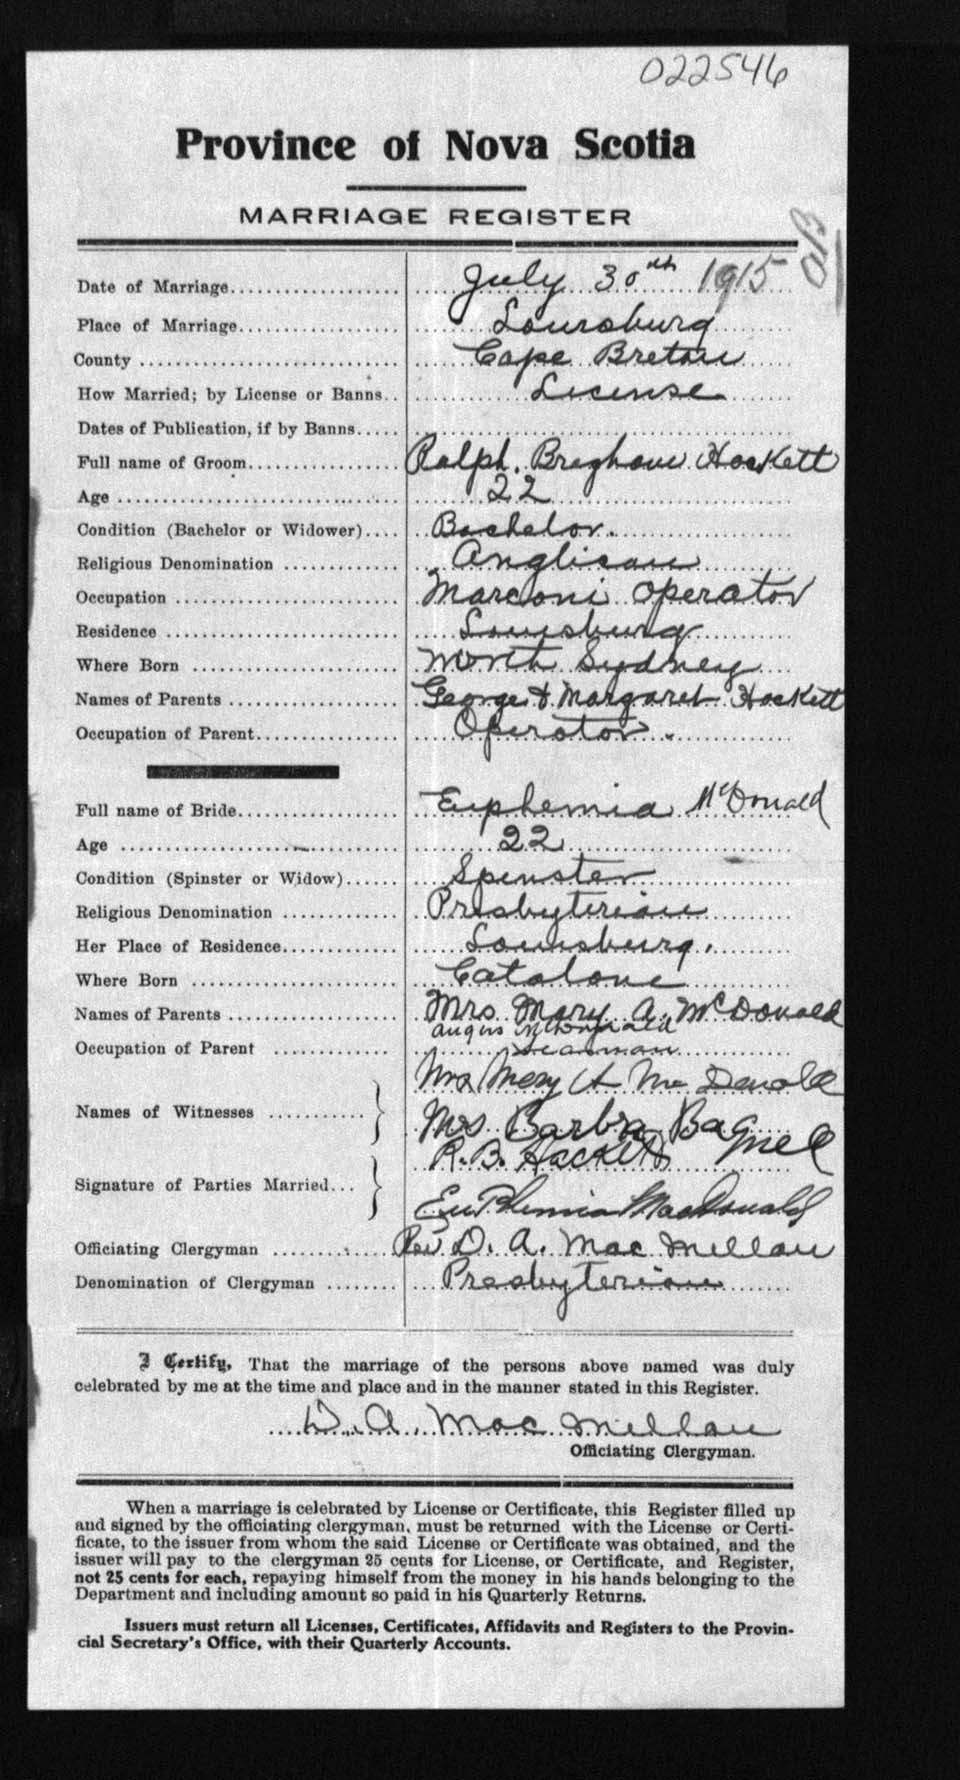 022546
Province of Nova Scotia
MARRIAGE REGISTER
Date of Marriage July 30th 1915
Place of Marriage Louisburg
County Cape Breton
How Married; by License or Banns License
Dates of Publication, if by Banns
Full name of Groom Ralph Hackett
Age 22
Condition (Bachelor or Widower) Bachelor.
Religious Denomination Anglican
Occupation Marconi Operator
Residence Louisburg
Where Born North Sydney
Names of Parents George & Margaret Hackett
Occupation of Parent Operator.
Full name of Bride Euphemia McDonald
Age 22
Condition (Spinster or Widow) Spinster
Religious Denomination Presbyterian
Her Place of Residence Louisburg.
Where Born Catalone
Names of Parents Mrs Mary A. McDonald
Angus McDonald
Occupation of Parent Seaman
Mrs Mary A MacDonald
Names of Witnesses Mrs Barbra Bagnell
R. B. Hackett
Signature of Parties Married
Euphemia MacDonald
Officiating Clergyman Rev D. A. MacMillan
Denomination of Clergyman Presbyterian
I Certify, That the marriage of the persons above named was duly
celebrated by me at the time and place and in the manner stated in this Register.
D. A. MacMillan
Officiating Clergyman.
When a marriage is celebrated by License or Certificate, this Register filled up
and signed by the officiating clergyman, must be returned with the License or Certi-
ficate, to the issuer from whom the said License or Certificate was obtained, and the
issuer will pay to the clergyman 25 cents for License, or Certificate, and Register,
not 25 cents for each, repaying himself from the money in his hands belonging to the
Department and including amount so paid in his Quarterly Returns.
Issuers must return all Licenses, Certificates, Affidavits and Registers to the Provin-
cial Secretary's Office, with their Quarterly Accounts.